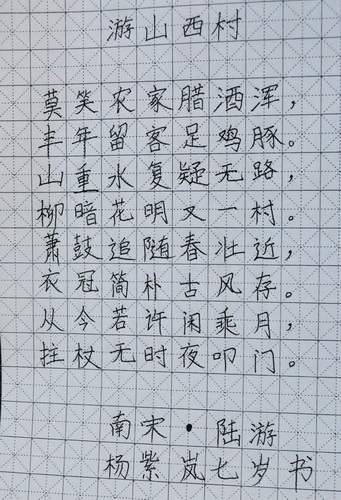 游山西村
莫笑农家腊酒浑，
丰年留客足鸡豚。
山重水复疑无路，
柳暗花明又一村。
萧鼓追随春壮近，
衣冠简朴古风存。
从今若许闲乘月，
拄杖无时夜叩门。
南宋·陆游
杨紫岚七岁书